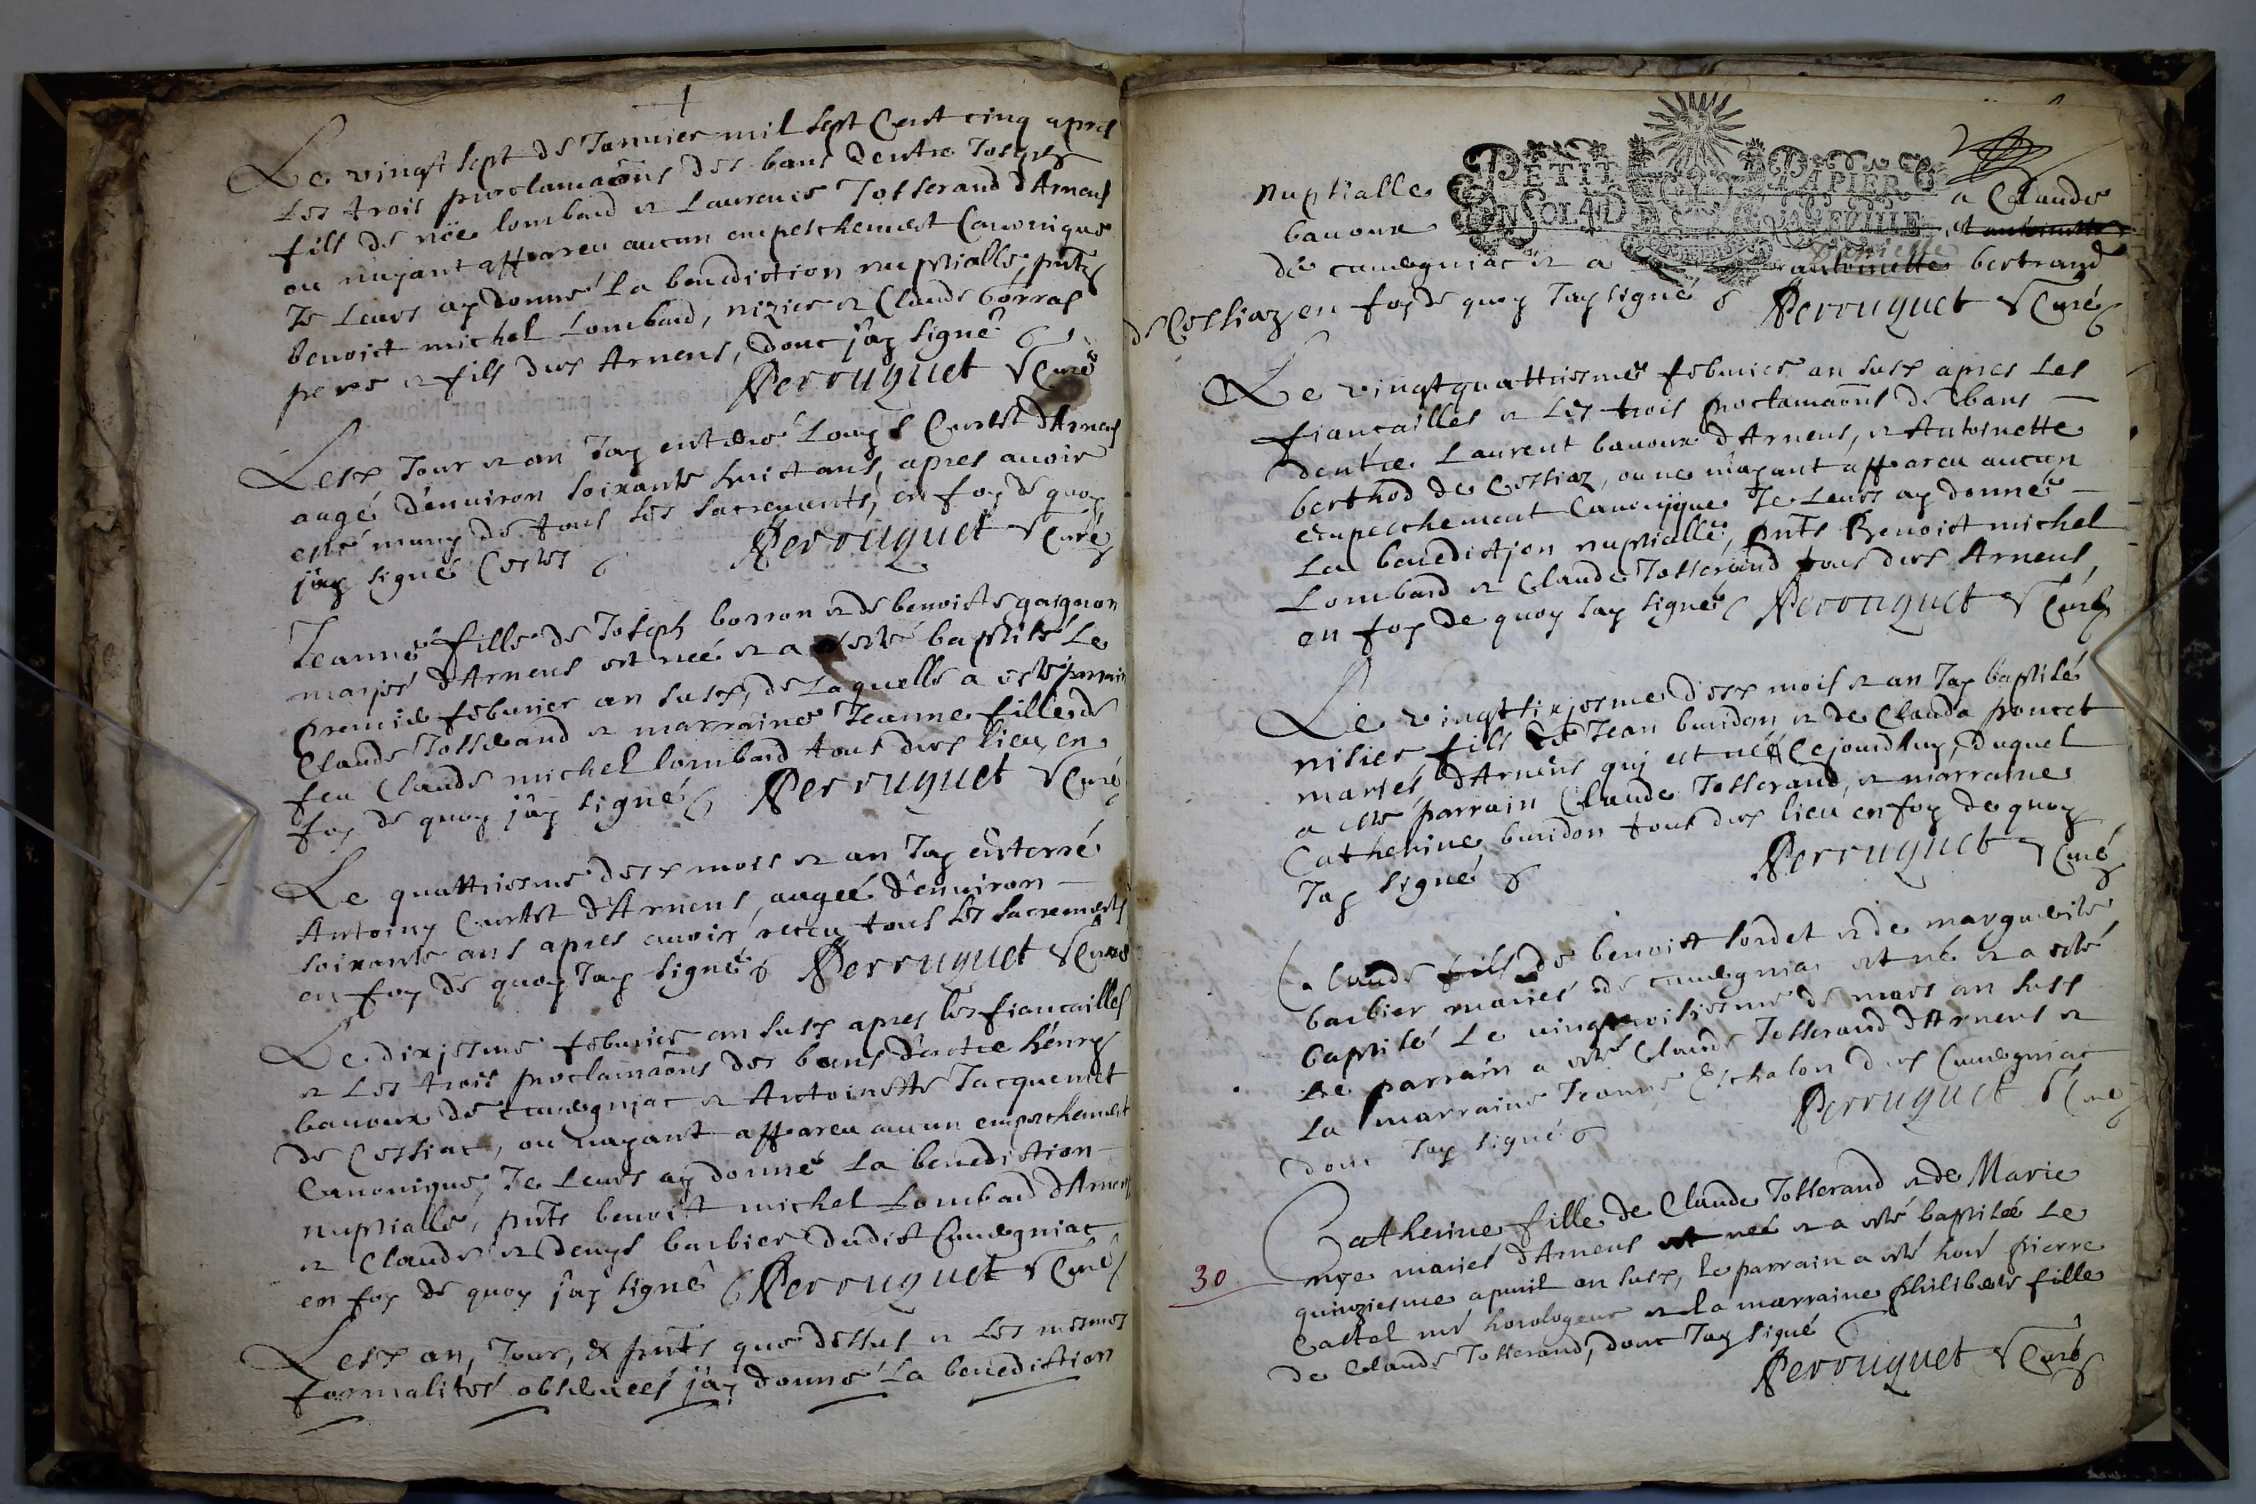 Le vingt sept de Janvier mil sept cent cinq apres
les trois proclamaōns des bans dentre Joseph
fils de noë lombard et Laurence Josserand d'Arnens
ou nayant appareu aucun empeschement Canonique
Je Leurs ay donné la benediction nuptialle, pnts
benoist michel Lombard, nizier et Claude borras
pere et fils dud Arnens, dont j'ay signé
Perruquet Curé
Lesd Jour et an Jay enterré Louys Curtet d'Arnens
aagé d'environ soixante huict ans, apres avoir
esté muny de tous les sacrements, en foy de quoy
j'ay signé Cestes
Perruquet Curé
Jeanne fille de Joseph borron et de benoiste gaignon
mariés d'Arnens est neé et a esté baptisé le
premier febvrier an susd, de laquelle a esté parrain
Claude Josserand et marraine Jeanne fille de
feu Claude michel lombard tous dud lieu, en
foy de quoy j'ay signé Perruquet Curé
Le quattriesme desd mois et an Jay enterré
Antoiny Curtet d'Arnens, aageé d'environ
soixante ans apres avoir receu tous les sacrements
en foy de quoy Jay signé Perruquet Curé
Le dixjesme febvrier an susd apres les fiancailles
et Les trois proclamaōns des bans d'entre henry
bavoux de curegniac et Antoinette Jacquemet
de Cessiat, ou nayant appareu aucun empeschement
Canonique, Je Leurs ay donné La benediction
nuptialle, pnts benoist michel Lombard d'Arnens
et Claude et Denys barbier dudit Curegniac
en foy de quoy j'ay signé Perruquet Curé
Lesd an, Jour, & pnts que dessus et Les mesmes
formalités observeés j'ay donné La benediction
PETIT PAPIER
UN SOL 4 D LA QUA FEUILLE
nuptialle a Claude
bavoux et antoinette
de curegniac et a antoinette bertrand
de Cessiaz en foy de quoy Jay signé Perruquet Curé
Le vingtquattriesme febvrier an susd apres Les
fiancailles et Les trois proclamaōns de bans
dentre Laurent bavoux d'Arnens, et Antoinette
berthod de Cessiaz, ou ne m'ayant appareu aucun
empeschement Canonique Je Leurs ay donné
La benediction nuptialle, pnts Benoist michel
Lombard et Claude Josserand tous dud Arnens,
en foy de quoy Jay signé Perruquet Curé
Le vingtsixjesme desd mois et an Jay baptisé
nisier, fils de Jean buidon et de Clauda poncet
mariés d'Arnens quj est né Cejourdhuy, duquel
a esté parrain Claude Josserand, et marraine
Catherine buidon tous dud lieu en foy de quoy
Jay signé
Perruquet Curé
Claude fils de benoist sordet et de marguerite
barbier mariés de curegniac est né et a esté
baptisé Le vingtroisiesme de mars an susd
Le parrain a esté Claude Josserand d'Arnens et
La marraine Jeanne Eschalon dud Curegniac
dont Jay signé
Perruquet Curé
Catherine fille de Claude Josserand et de Marie
mariés d'Arnens est neé et a esté baptiseé Le
30
quinziesme apvril an susd, le parrain a esté hon pierre
Castel mé horologeur et la marraine philiberte fille
de Claude Josserand, dont Jay signé
Perruquet Curé